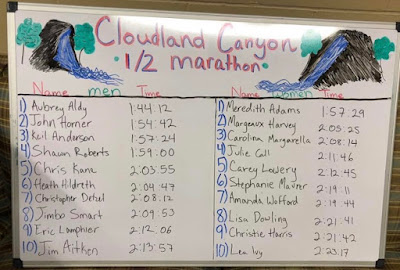 Cloudland Canyon
1/2 marathon
Name men Time
1) Aubrey Aldy 1:44:12
2) John Horner 1:54:42
3) Keil Anderson 1:57:24
4) Shawn Roberts 1:59:00
5) Chris Kane 2:03:55
6) Heath Hildreth 2:04:47
7) Christopher Dehel 2:08:12
8) Jimbo Smart 2:09:53
9) Eric Lamphier 2:12:06
10) Jim Aitken 2:13:57
Name women Time
1) Meredith Adams 1:57:29
2) Margeaux Harvey 2:05:25
3) Carolina Margarella 2:08:14
4) Julie Call 2:11:46
5) Carey Lowery 2:12:45
6) Stephanie Mavrer 2:19:11
7) Amanda Wofford 2:19:44
8) Lisa Dowling 2:21:41
9) Christie Harris 2:21:42
10) Lea Ivy 2:23:17